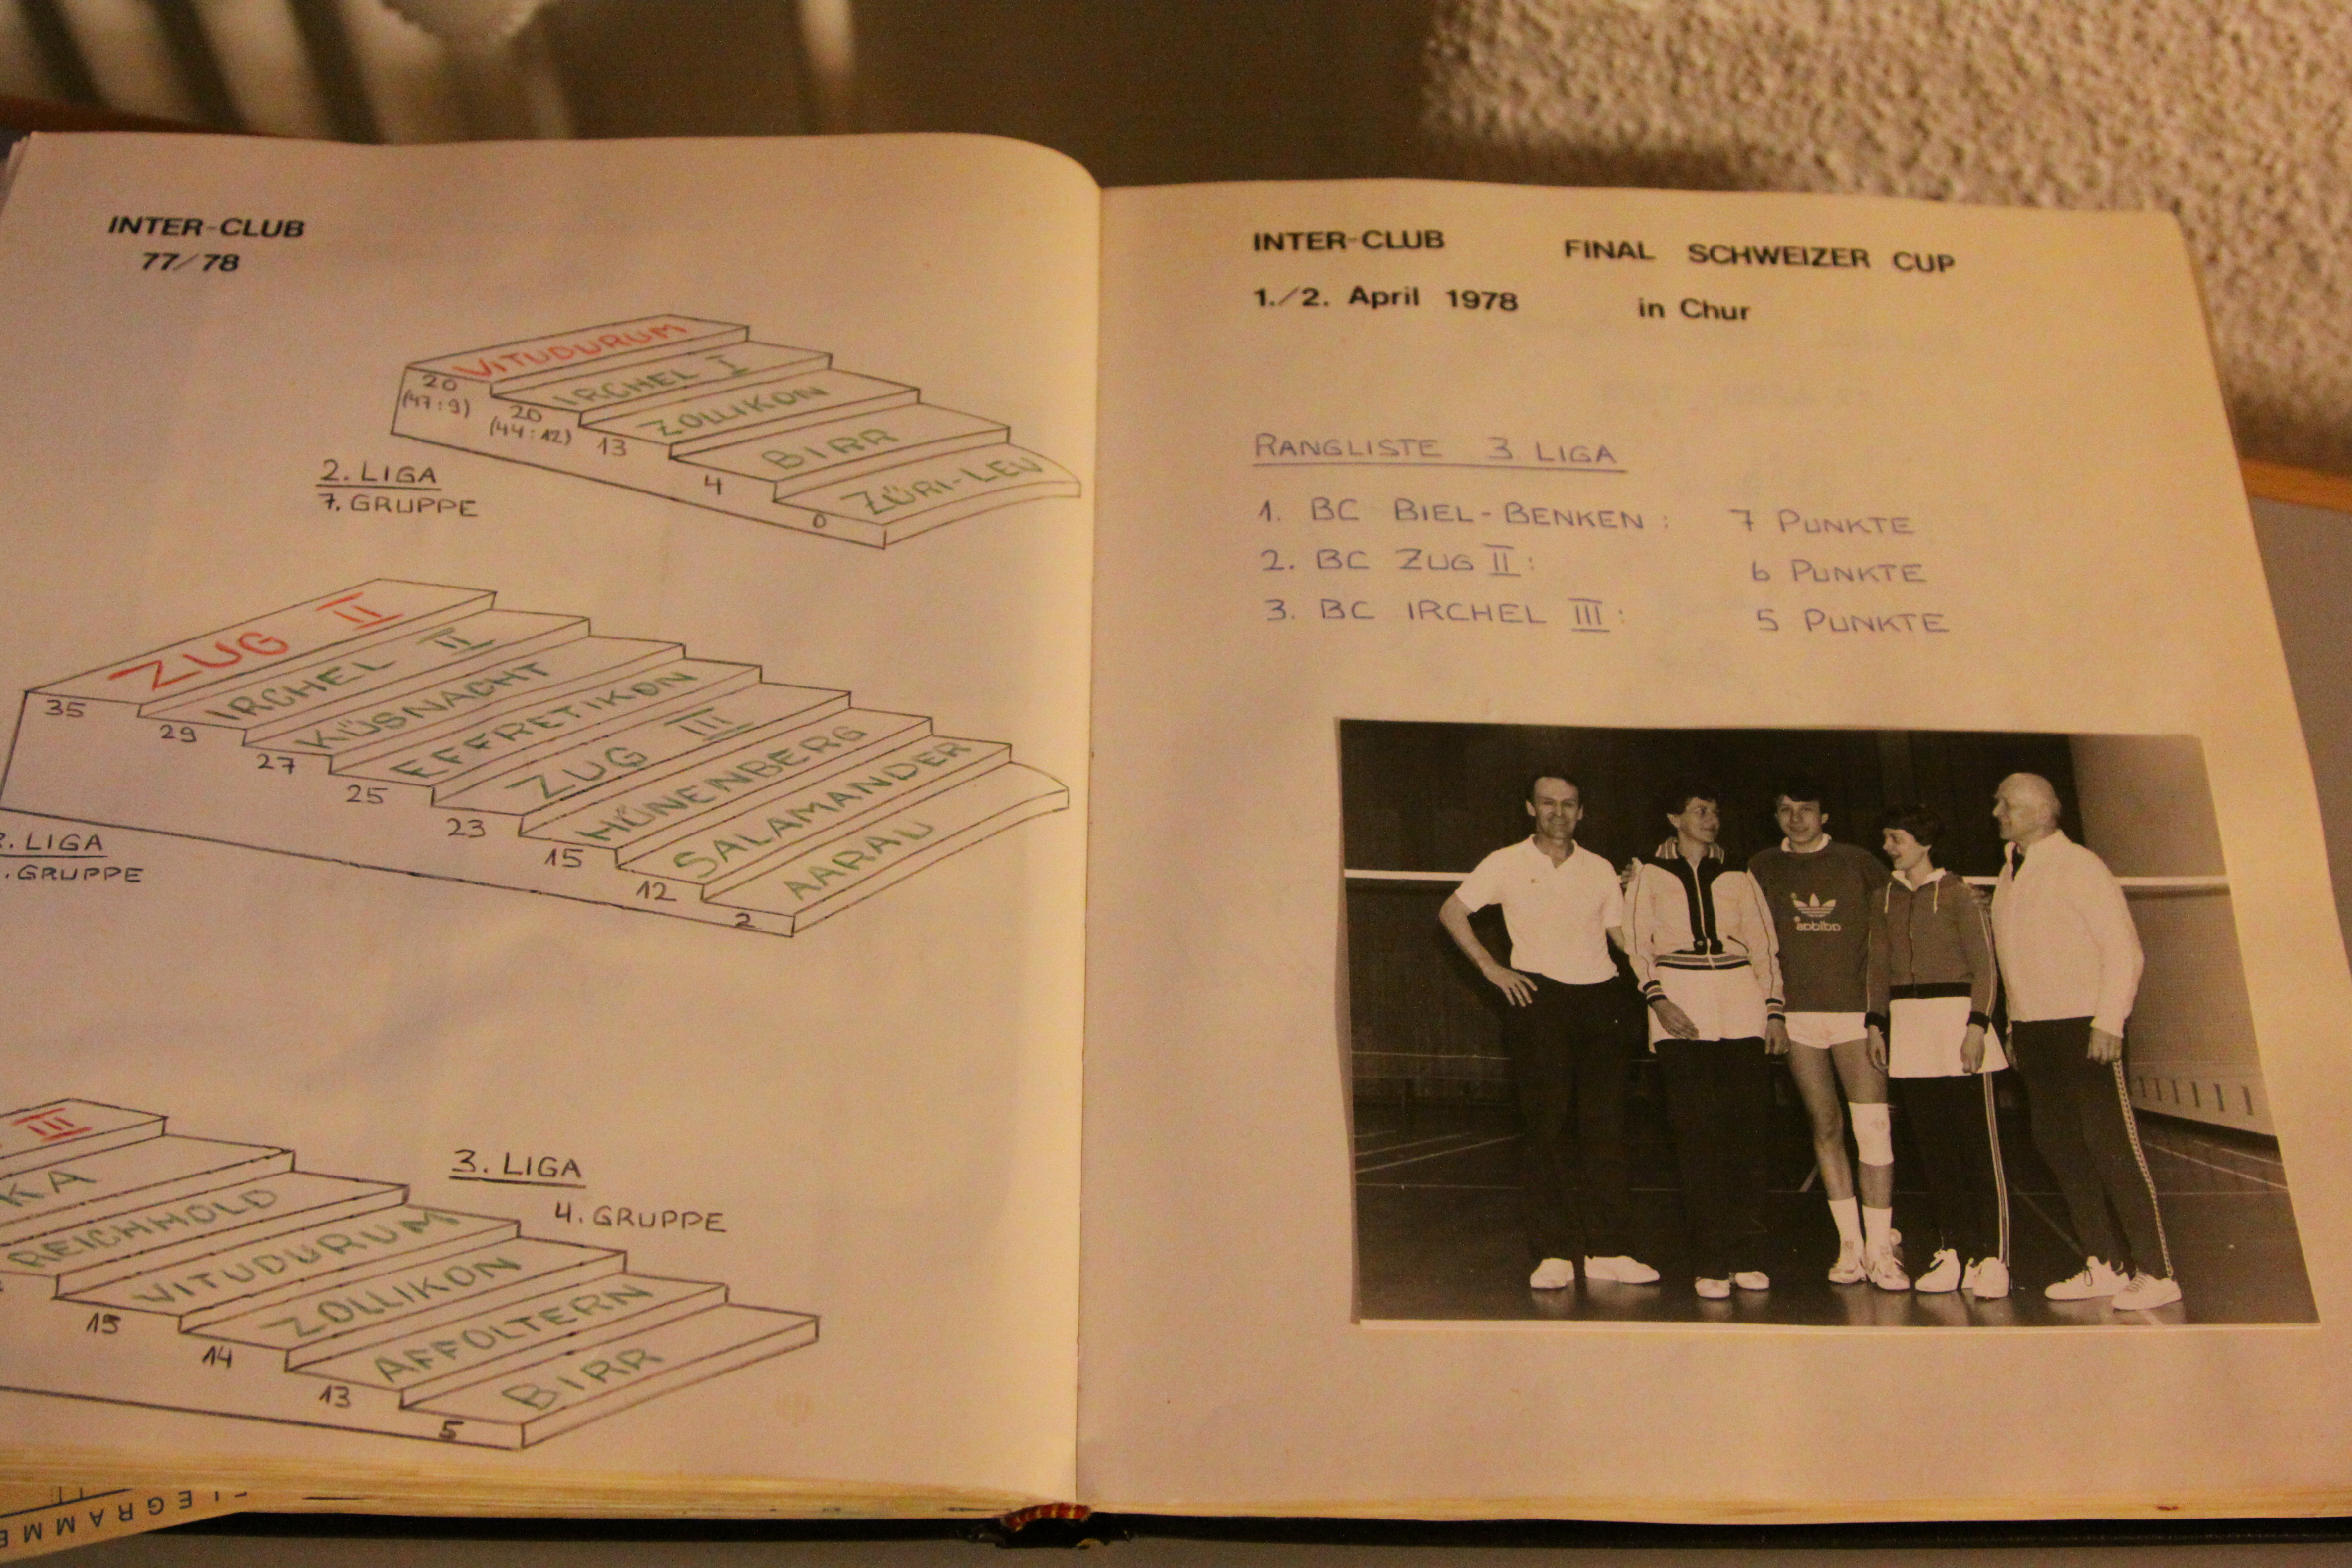 INTER-CLUB
77/78
VITUDURUM
20
(47:9)
IRCHEL I
20
(44:12)
ZOLLIKON
13
BIRR
4
ZÜRI-LEU
0
2. LIGA
7. GRUPPE
ZUG II
35
IRCHEL II
29
KÜSNACHT
27
EFFRETIKON
25
ZUG III
23
HÜNENBERG
15
SALAMANDER
12
AARAU
2
LIGA
GRUPPE
III
KA
REICHHOLD
VITUDURUM
15
ZOLLIKON
14
AFFOLTERN
13
BIRR
5
3. LIGA
4. GRUPPE
LEGRAMME
INTER-CLUB FINAL SCHWEIZER CUP
1./2. April 1978 in Chur
RANGLISTE 3 LIGA
1. BC BIEL-BENKEN: 7 PUNKTE
2. BC ZUG II: 6 PUNKTE
3. BC IRCHEL III: 5 PUNKTE
adidas